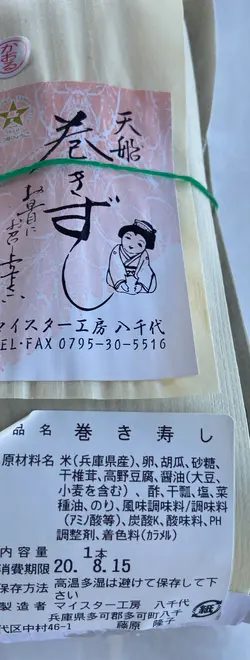 かおる
天船
巻きずし
お昼に
マイスター工房 八千代
TEL・FAX 0795-30-5516
品名 巻き寿し
原材料名 米(兵庫県産)、卵、胡瓜、砂糖、
干椎茸、高野豆腐、醤油(大豆、
小麦を含む)、酢、干瓢、塩、菜
種油、のり、風味調味料/調味料
(アミノ酸等)、炭酸K、酸味料、PH
調整剤、着色料(カラメル)
内容量 1本
消費期限 20. 8.15
保存方法 高温多湿は避けて保存して下
さい
製造者 マイスター工房 八千代
兵庫県多可郡多可町八千
代区中村46-1 藤原 隆子
紙